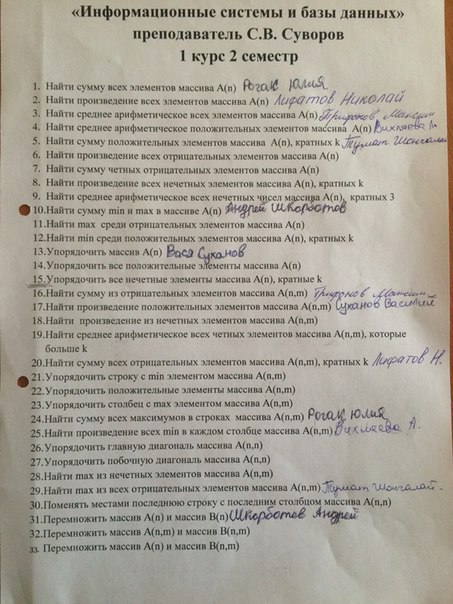 «Информационные системы и базы данных»
преподаватель С.В. Суворов
1 курс 2 семестр
1. Найти сумму всех элементов массива A(n) Рогак Юлия
2. Найти произведение всех элементов массива A(n) Лифатов Николай
3. Найти среднее арифметическое всех элементов массива A(n) Трифонов Максим
4. Найти среднее арифметическое положительных элементов массива A(n) Вихляева А.
5. Найти сумму положительных элементов массива A(n), кратных k Тумат Шончалай
6. Найти произведение всех отрицательных элементов массива A(n)
7. Найти сумму четных отрицательных элементов массива A(n)
8. Найти произведение всех нечетных элементов массива A(n), кратных k
9. Найти среднее арифметическое всех нечетных чисел массива A(n), кратных 3
10. Найти сумму min и max в массиве A(n) Андрей Шкорботов
11. Найти max среди отрицательных элементов массива A(n)
12. Найти min среди положительных элементов массива A(n), кратных k
13. Упорядочить массив A(n) Вася Суханов
14. Упорядочить все положительные элементы массива A(n)
15. Упорядочить все нечетные элементы массива A(n), кратные k
16. Найти сумму из отрицательных элементов массива A(n,m) Трифонов Максим
17. Найти произведение положительных элементов массива A(n,m) Суханов Василий
18. Найти произведение из нечетных элементов массива A(n,m)
19. Найти среднее арифметическое всех четных элементов массива A(n,m), которые
больше k
20. Найти сумму всех отрицательных элементов массива A(n,m), кратных k Лифатов Н.
21. Упорядочить строку с min элементом массива A(n,m)
22. Упорядочить положительные элементы массива A(n,m)
23. Упорядочить столбец с max элементом массива A(n,m)
24. Найти сумму всех максимумов в строках массива A(n,m) Рогак Юлия
25. Найти произведение всех min в каждом столбце массива A(n,m) Вихляева А.
26. Упорядочить главную диагональ массива A(n,n)
27. Упорядочить побочную диагональ массива A(n,n)
28. Найти max из нечетных элементов массива A(n,m)
29. Найти max из всех отрицательных элементов массива A(n,m) Тумат Шончалай.
30. Поменять местами последнюю строку с последним столбцом массива A(n,n)
31. Перемножить массив A(n) и массив B(n) Шкорботов Андрей
32. Перемножить массив A(n,m) и массив B(n,m)
33. Перемножить массив A(n) и массив B(n,m)